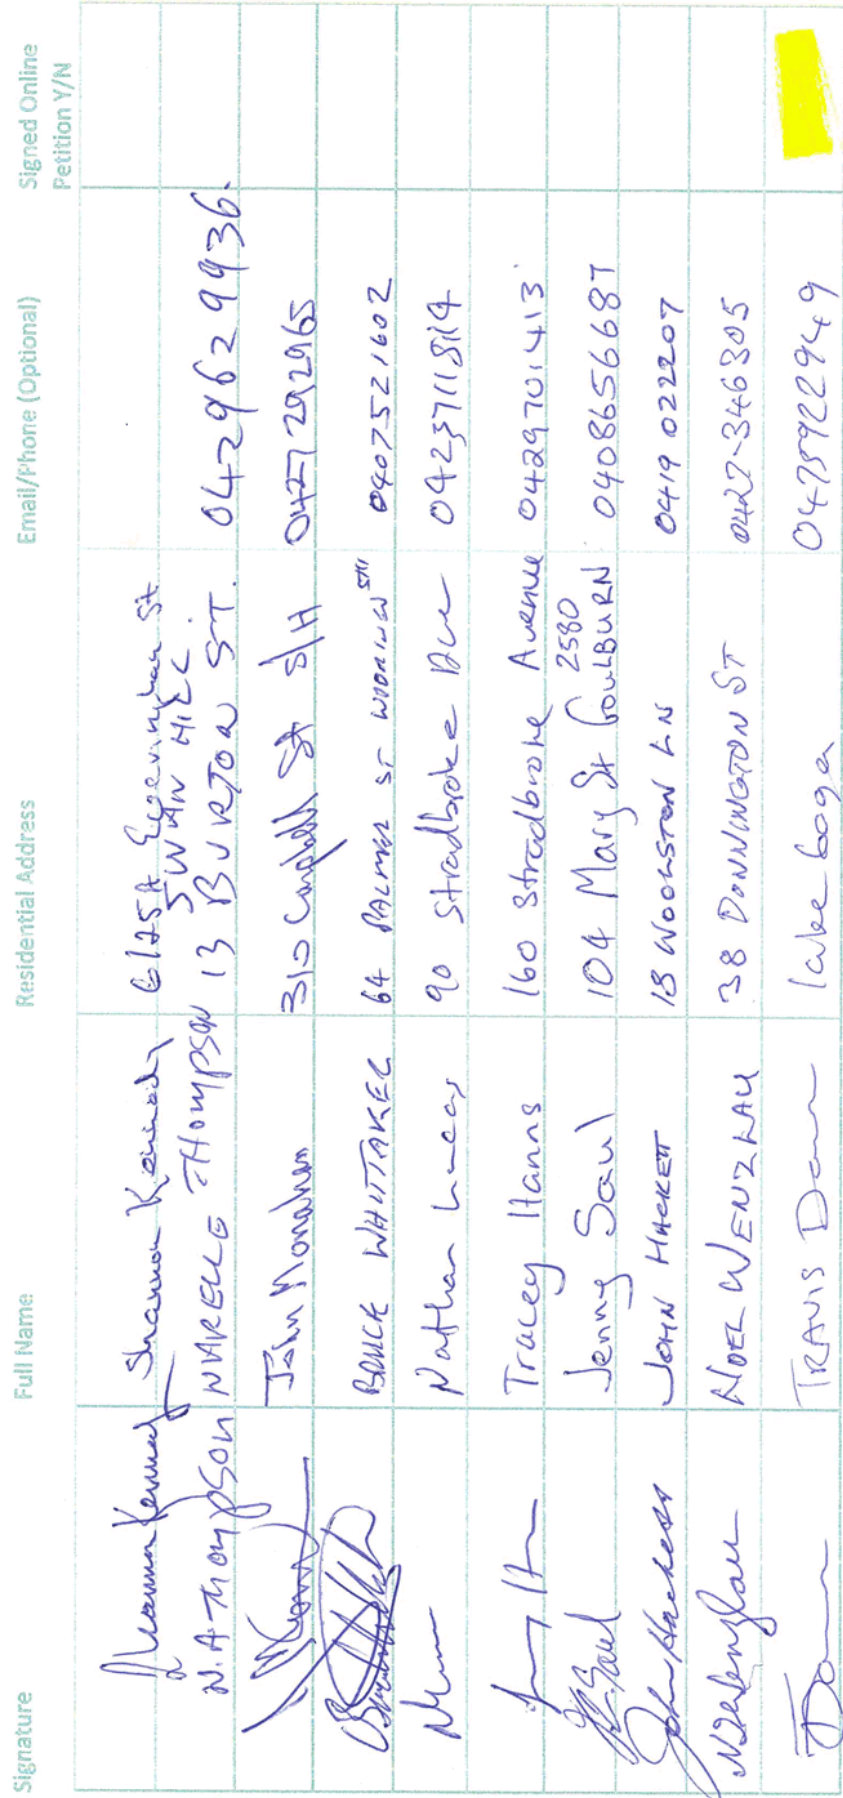 Signature Full Name Residential Address Email/Phone (Optional) Signed Online Petition Y/N
Shannon Kennedy Shannon Kennedy 6/25A St
SWAN HILL
N.A Thompson NARELLE THOMPSON 13 BURTON ST. 0429629936.
John Monahan 310 Campbell St S/H 0427292965
BRUCE WHITTAKER 64 PALMER ST 0407521602
Nathan Lucas 90 Stradbroke Ave
Tracey Hanns 160 Stradbroke Avenue 0429701413
2580
J Saul Jenny Saul 104 Mary St GOULBURN 0408656687
John Hackett JOHN HACKETT 18 WOOLSTON LN 0419 022207
N Wenzlau NOEL WENZLAU 38 DONNINGTON ST 0427-346305
TRAVIS lake boga 0475922949